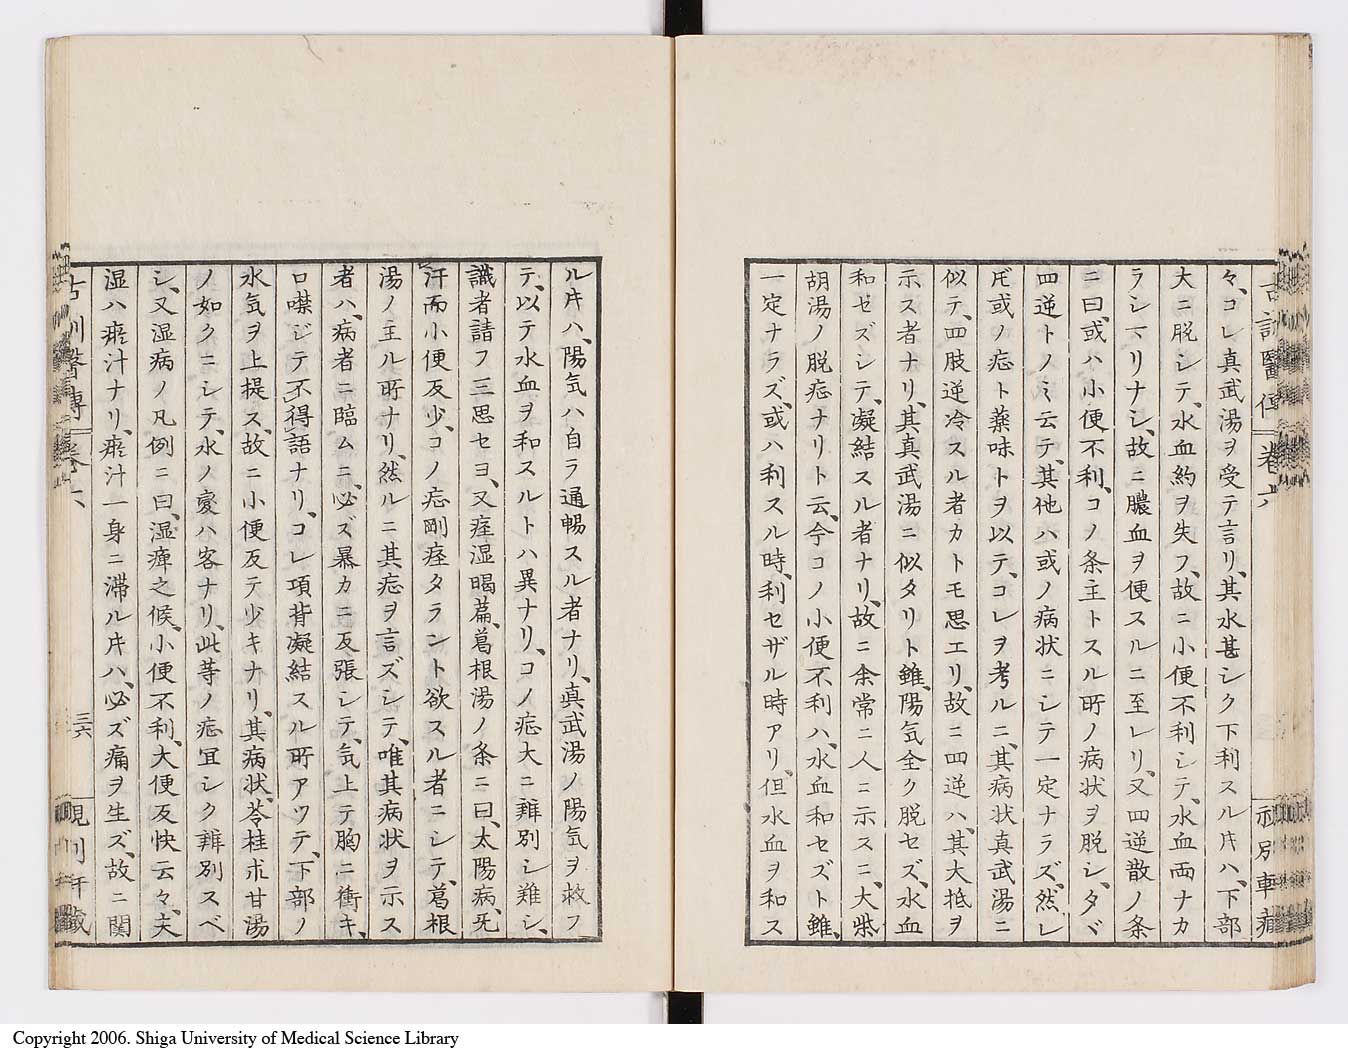 々、コレ真武湯ヲ受テ言リ、其水甚シク下利スル𪜈ハ、下部
大ニ脱シテ、水血約ヲ失フ、故ニ小便不利シテ、水血両ナカ
ラシマリナシ、故ニ膿血ヲ便スルニ至レリ、又四逆散ノ条
ニ曰、或ハ小便不利、コノ条主トスル所ノ病状ヲ脱シ、タヾ
四逆トノミ云テ、其他ハ或ノ病状ニシテ一定ナラズ、然レ
𪜈或ノ症ト薬味トヲ以テ、コレヲ考ルニ、其病状真武湯ニ
似テ、四肢逆冷スル者カトモ思エリ、故ニ四逆ハ、其大抵ヲ
示ス者ナリ、其真武湯ニ似タリト雖、陽気全ク脱セズ、水血
和セズシテ、凝結スル者ナリ、故ニ余常ニ人ニ示スニ、大柴
胡湯ノ脱症ナリト云、今コノ小便不利ハ、水血和セズト雖、
一定ナラズ、或ハ利スル時、利セザル時アリ、但水血ヲ和ス
ル𪜈ハ、陽気ハ自ラ通暢スル者ナリ、真武湯ノ陽気ヲ救フ
テ、以テ水血ヲ和スルトハ異ナリ、コノ症大ニ辨別シ難シ、
識者請フ三思セヨ、又痙湿暍篇、葛根湯ノ条ニ曰、太陽病、旡
汗而小便反少、コノ症剛痙タラント欲スル者ニシテ、葛根
湯ノ主ル所ナリ、然ルニ其症ヲ言ズシテ、唯其病状ヲ示ス
者ハ、病者ニ臨ムニ、必ズ暴カニ反張シテ、気上テ胸ニ衝キ、
口噤ジテ不得語ナリ、コレ項背凝結スル所アツテ、下部ノ
水気ヲ上提ス、故ニ小便反テ少キナリ、其病状、苓桂朮甘湯
ノ如クニシテ、水ノ変ハ客ナリ、此等ノ症宜シク辨別スベ
シ、又湿病ノ凡例ニ曰、湿痺之候、小便不利、大便反快云々、夫
湿ハ瘀汁ナリ、瘀汁一身ニ滞ル𪜈ハ、必ズ痛ヲ生ズ、故ニ関
古訓醫傳 巻六
三六